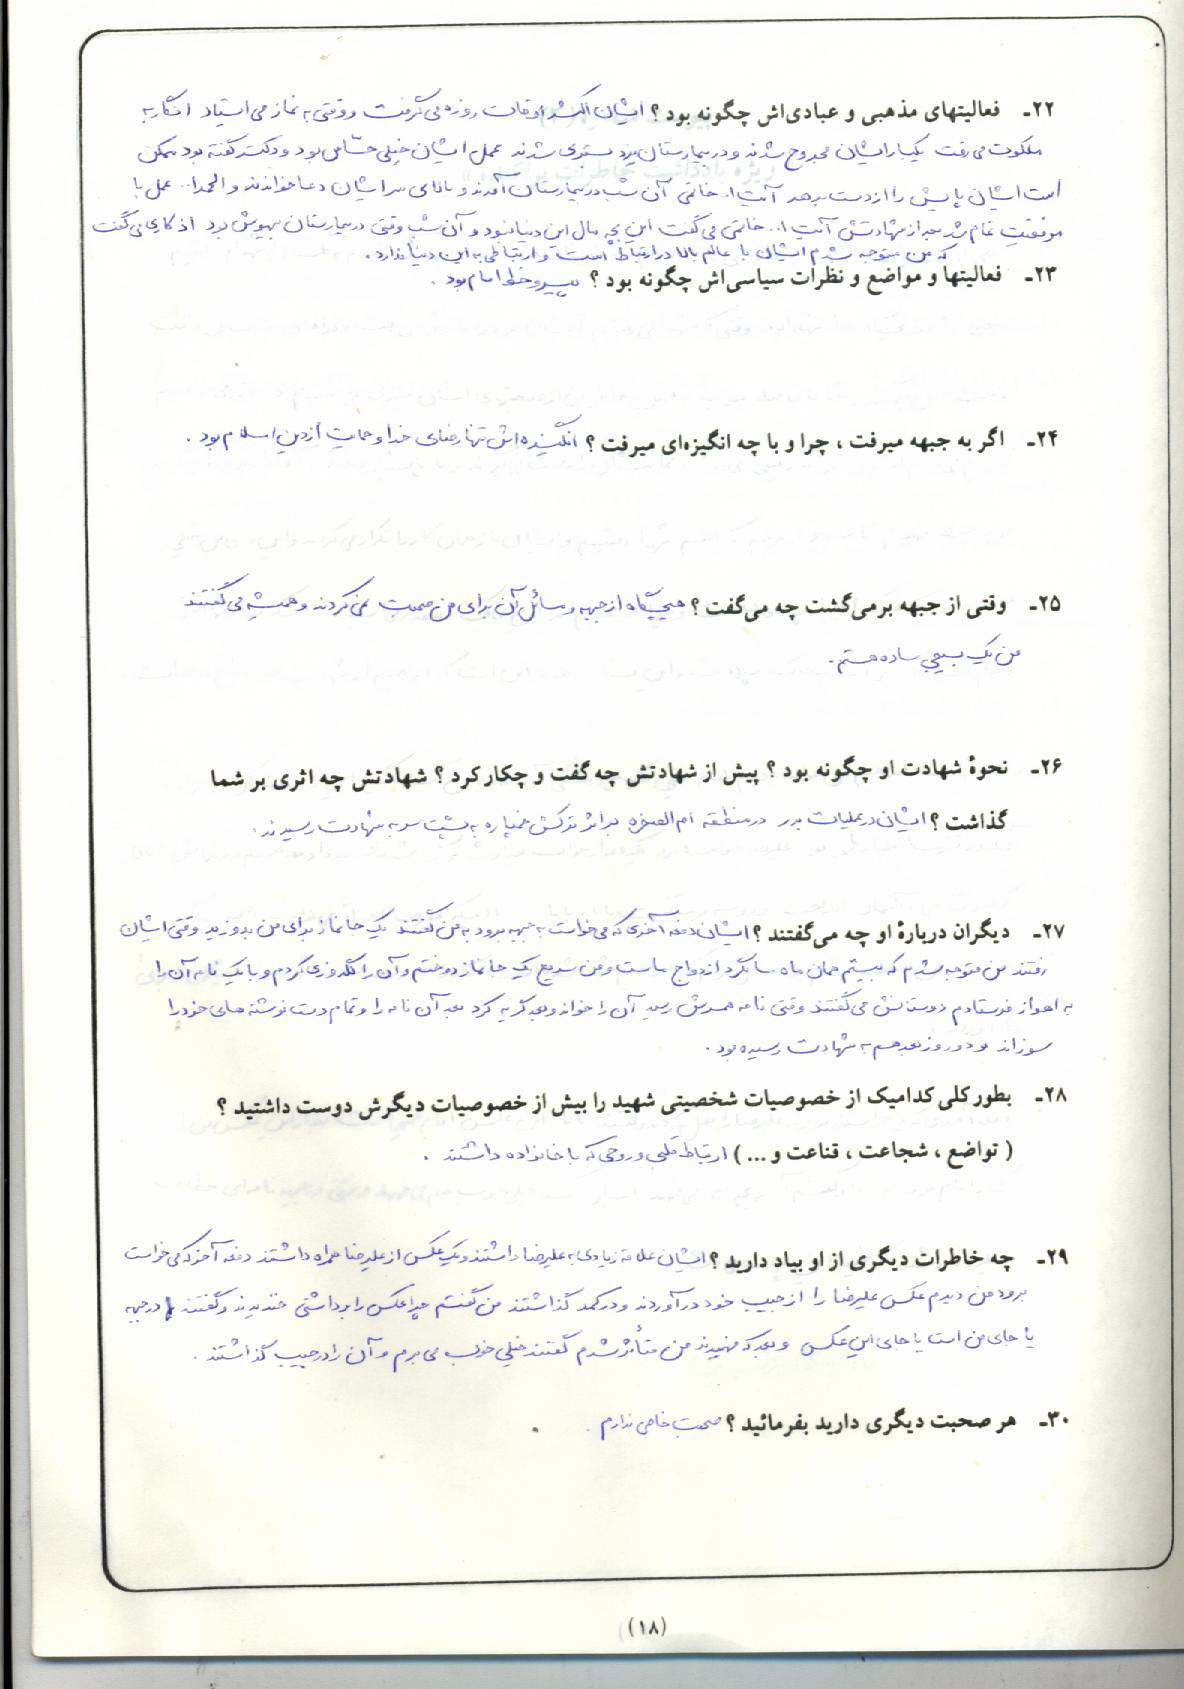 ۲۲ـ فعالیتهای مذهبی و عبادی‌اش چگونه بود؟ ایشان اکثر اوقات روزه می گرفت و وقتی به نماز می ایستاد انگار به
ملکوت می رفت یکبار ایشان مجروح شدند و در بیمارستان یزد بستری شدند عمل ایشان خیلی حسّاس بود و دکتر گفته بود ممکن
است ایشان پایش را از دست بدهد آیت ا.. خاتمی آن شب در بیمارستان آمدند و بالای سر ایشان دعا خواندند و الحمدا.. عمل با
موفقیت تمام شد بعد از شهادتش آیت ا.. خاتمی می گفت این بچه مال این دنیا نبود و آن شب وقتی در بیمارستان بیهوش بود اذکاری می گفت
که من متوجه شدم ایشان با عالم بالا در ارتباط است و ارتباطی به این دنیا ندارد.
۲۳ـ فعالیتها و مواضع و نظرات سیاسی‌اش چگونه بود؟ پیرو خط امام بود.
۲۴ـ اگر به جبهه میرفت ، چرا و با چه انگیزه‌ای میرفت؟ انگیزه اش تنها رضای خدا و حمایت از دین اسلام بود.
۲۵ـ وقتی از جبهه برمی‌گشت چه می‌گفت؟ هیچگاه از جبهه و مسائل آن برای من صحبت نمی کردند و همیشه می گفتند
من یک بسیجی ساده هستم.
۲۶ـ نحوۀ شهادت او چگونه بود؟ پیش از شهادتش چه گفت و چکار کرد؟ شهادتش چه اثری بر شما
گذاشت؟ ایشان در عملیات بدر در منطقه ام الصخره بر اثر ترکش خمپاره به پشت سر به شهادت رسیدند.
۲۷ـ دیگران دربارۀ او چه می‌گفتند؟ ایشان دفعه آخری که می خواست به جبهه برود به من گفتند یک جانماز برای من بدوزید وقتی ایشان
رفتند من متوجه شدم که بیستم همان ماه سالگرد ازدواج ماست و من سریع یک جانماز دوختم و آن را گلدوزی کردم و با یک نامه آن را
به اهواز فرستادم دوستانش می گفتند وقتی نامه همسرش رسید آن را خواند و بعد گریه کرد بعد آن نامه را و تمام دست نوشته های خود را
سوزاند و دو روز بعد هم به شهادت رسیده بود.
۲۸ـ بطور کلی کدامیک از خصوصیات شخصیتی شهید را بیش از خصوصیات دیگرش دوست داشتید؟
( تواضع ، شجاعت ، قناعت و ... ) ارتباط قلبی و روحی که با خانواده داشتند.
۲۹ـ چه خاطرات دیگری از او بیاد دارید؟ ایشان علاقه زیادی به علیرضا داشتند و یک عکس از علیرضا همراه داشتند دفعه آخر که می خواست
برود من دیدم عکس علیرضا را از جیب خود درآوردند و در کمد گذاشتند من گفتم چرا عکس را برداشتی خندیدند و گفتند در جبهه
یا جای من است یا جای این عکس و بعد که فهمیدند من متأثر شدم گفتند خیلی خوب می برم و آن را در جیب گذاشتند.
۳۰ـ هر صحبت دیگری دارید بفرمائید؟ صحبت خاصی ندارم.
(۱۸)